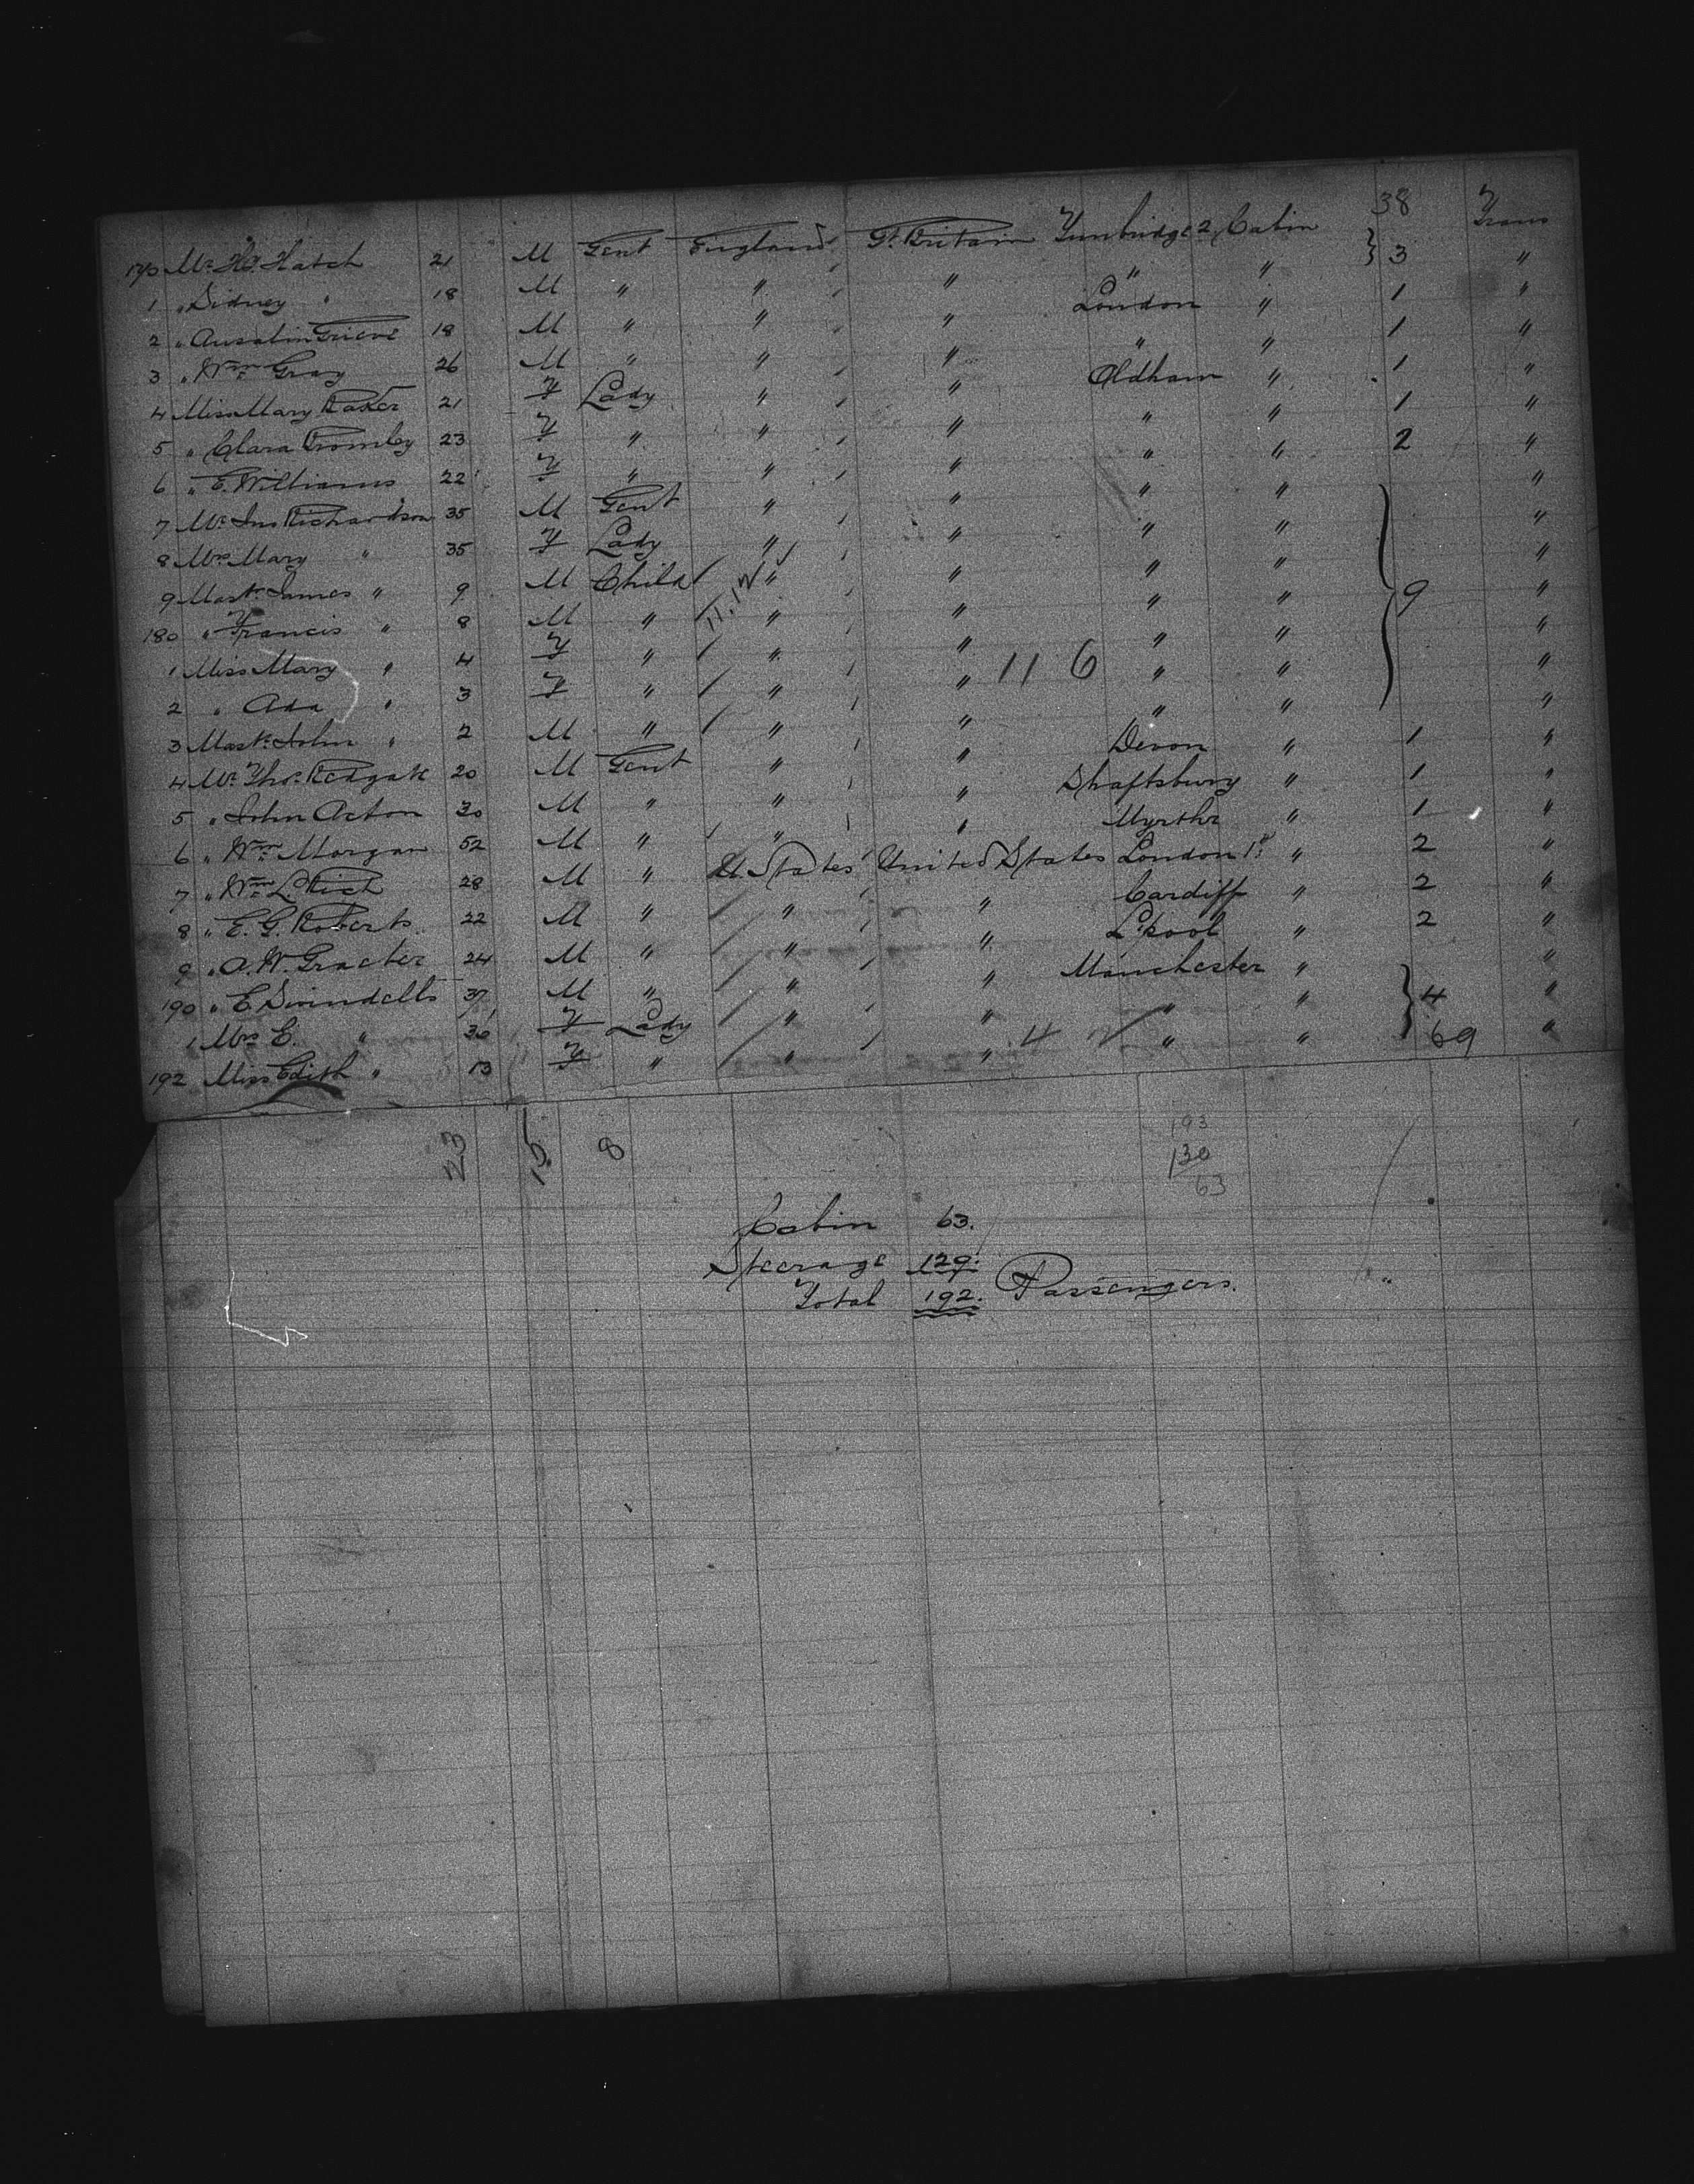 38
170 Mr. Hy. Hatch 21 M Gent England Gt. Britain Tunbridge 2 Cabin } 3 Trans
1 " Sidney " 18 M " " " " "
2 " Grieve 18 M " " " London " 1 "
3 " Wm. Gray 26 M " " " " " 1 "
4 Miss Mary Baker 21 F Lady " " Oldham " 1 "
5 " Clara Bromley 23 F " " " " " 1 "
6 " E. Williams 22 F " " " " " 2 "
7 Mr. Jno Richardson 35 M Gent " " " " "
8 Mrs. Mary " 35 F Lady " " " " "
9 Mast. James " 9 M Child " " " " 9 "
180 " Francis " 8 M " " " " " "
1 Miss Mary " 4 F " " " 11 6 " " "
2 " Ada " 3 F " " " " " "
3 Mast. John " 2 M " " " " " "
4 Mr. Thos. Redgate 20 M Gent " " Devon " 1 "
5 " John Acton 30 M " " " Shaftsbury " 1 "
6 " Wm. Morgan 52 M " " " Myrthr " 1 "
7 " Wm. L Rich 28 M " U States United States London 1st " 2 "
8 " E. G. Roberts 22 M " " " Cardiff " 2 "
9 " A. W. Gracter 24 M " " " L'pool " 2 "
190 " E Swindells 37 M " " " Manchester " "
1 Mrs. E. " 30 F Lady " " " " 4 "
192 Miss Edith " 13 F " " " 4 " " 69 "
23 15 8
193
130
63
Cabin 63.
Steerage 129.
Total 192. Passengers.